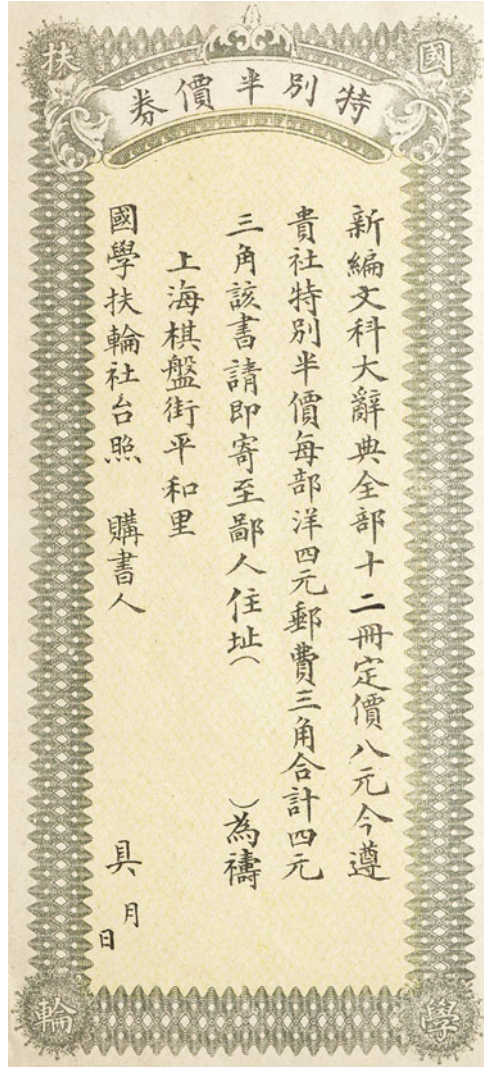 國學扶輪
特別半價券
新編文科大辭典全部十二冊定價八元今遵
貴社特別半價每部洋四元郵費三角合計四元
三角該書請即寄至鄙人住址（　　　）為禱
上海棋盤街平和里
國學扶輪社台照　購書人　　　具　月　日